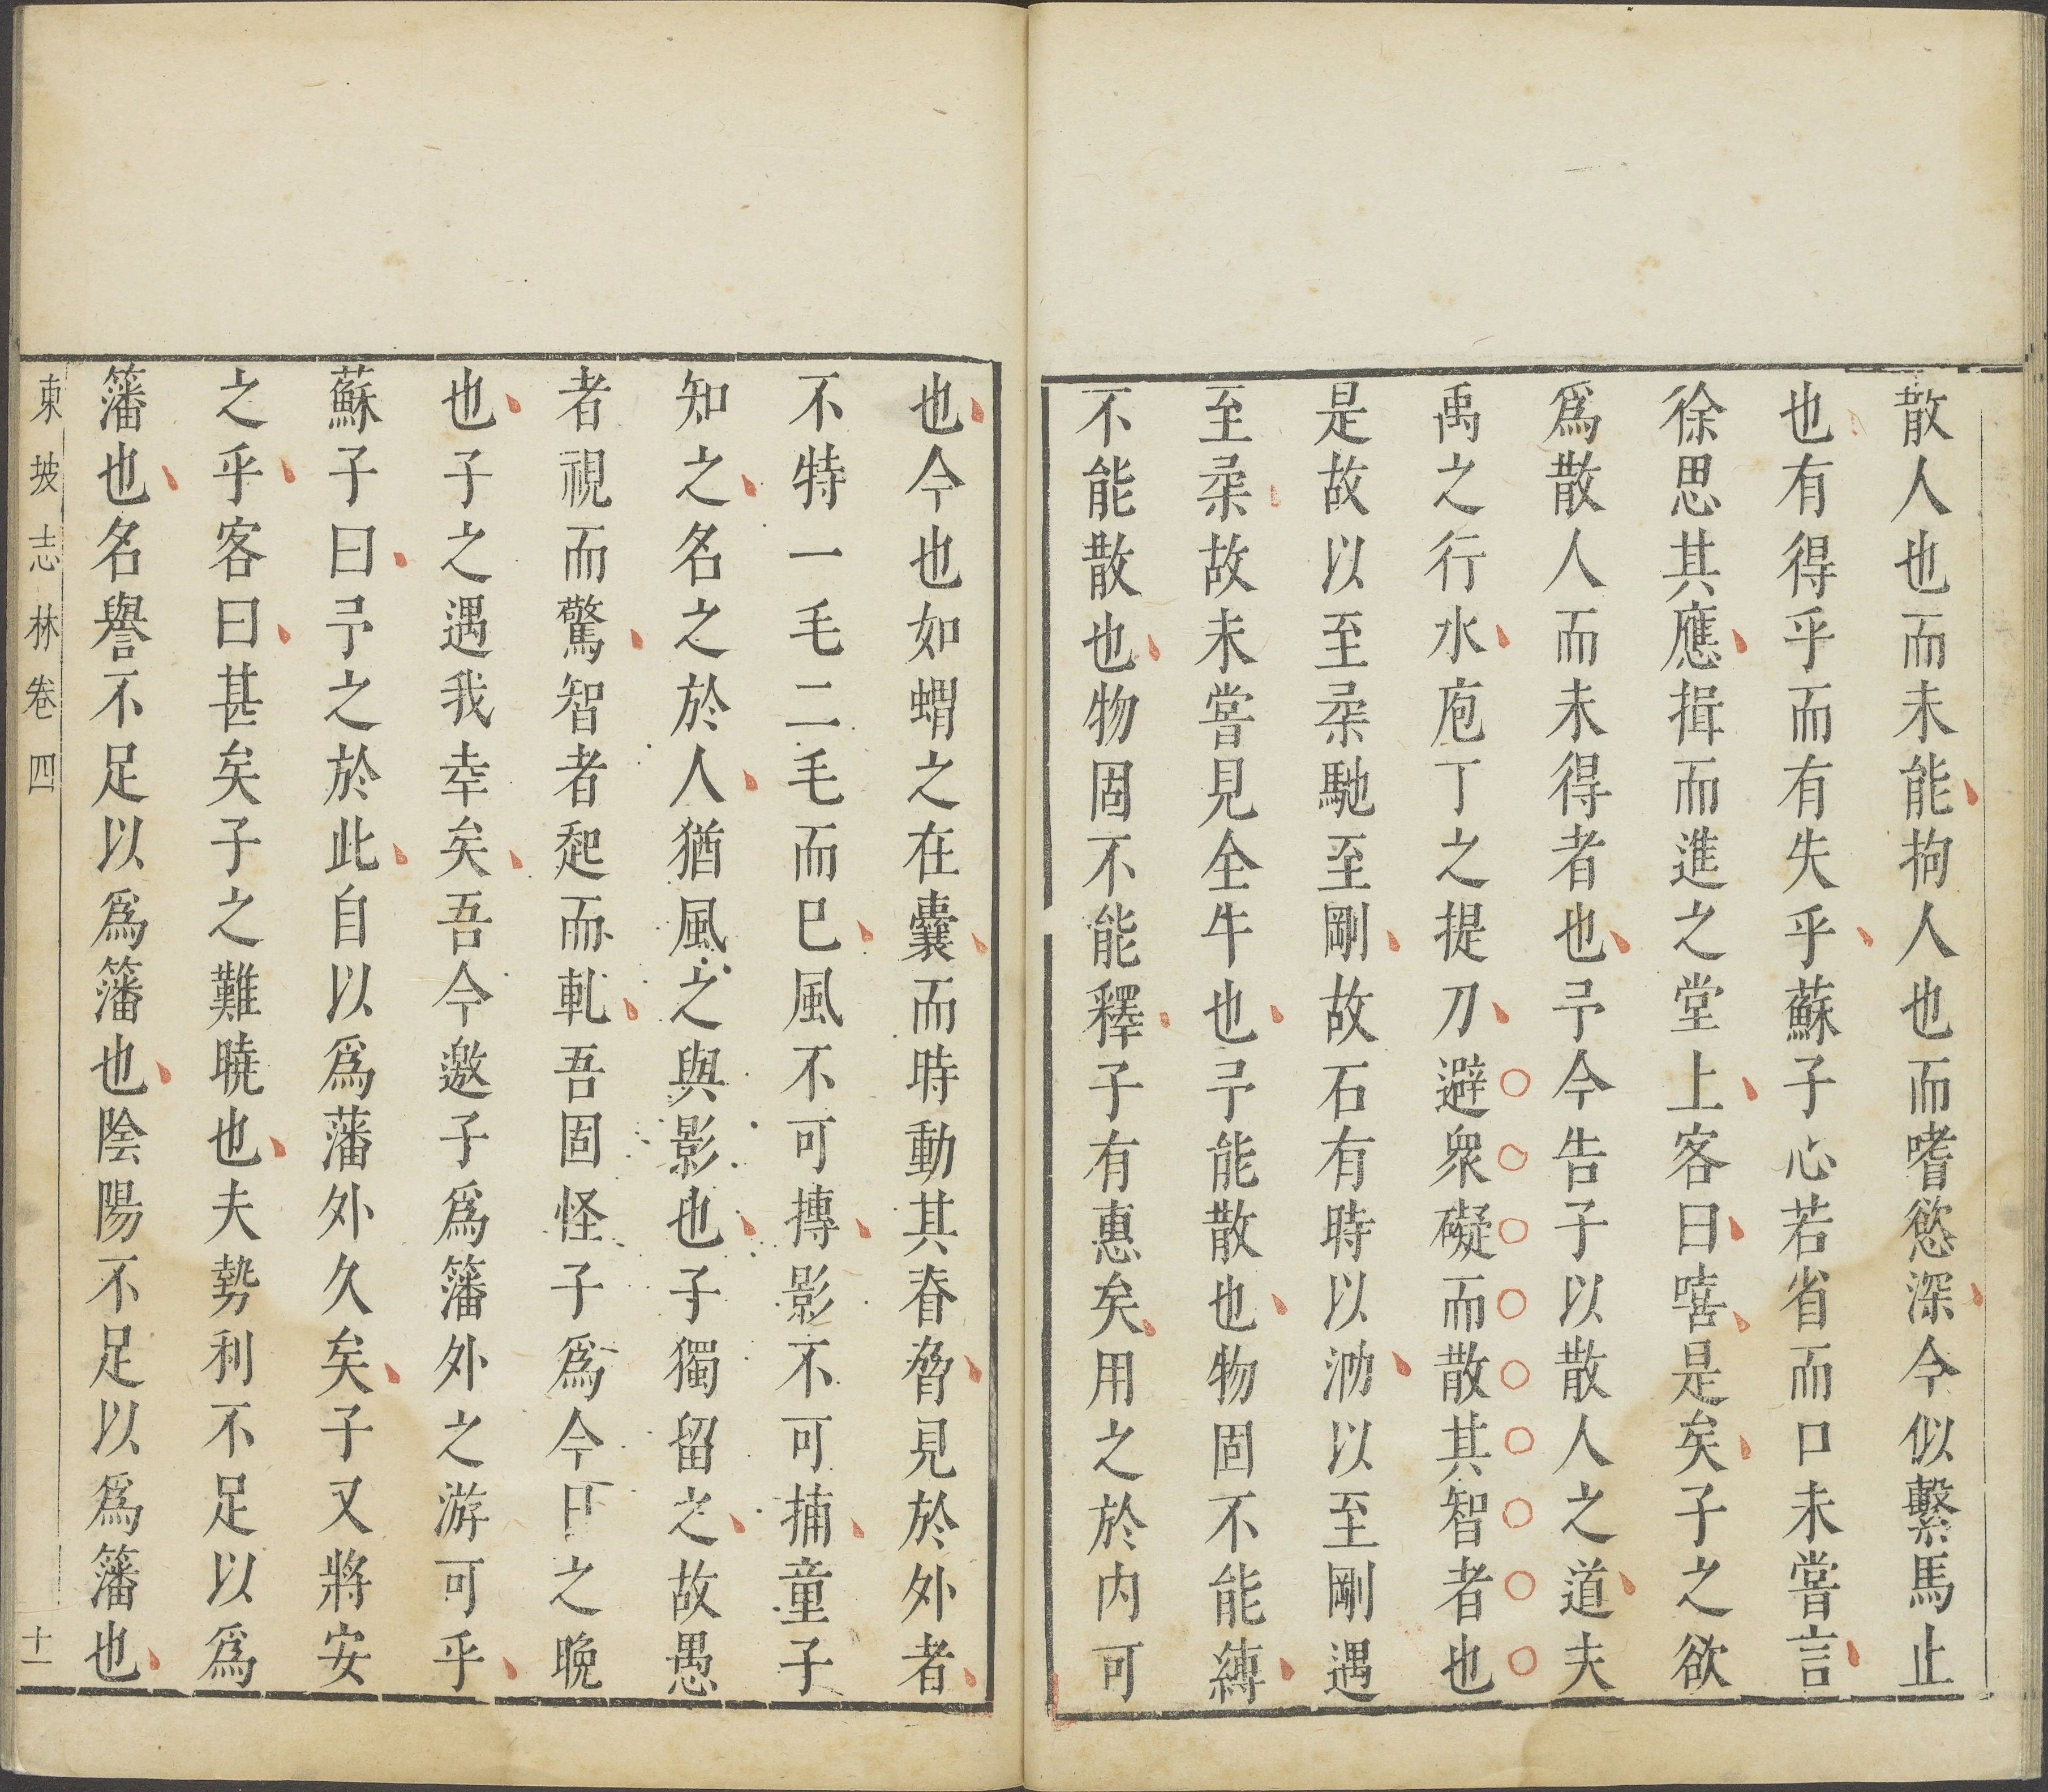 散人也而未能拘人也而嗜慾深今似繫馬止
也有得乎而有失乎蘇子心若省而口未嘗言
徐思其應揖而進之堂上客曰嘻是矣子之欲
爲散人而未得者也予今告子以散人之道夫
禹之行水庖丁之提刀避衆礙而散其智者也
是故以至柔馳至剛故石有時以泐以至剛遇
至柔故未嘗見全牛也予能散也物固不能縛
不能散也物固不能釋子有惠矣用之於内可
也今也如蝟之在囊而時動其脊脅見於外者
不特一毛二毛而已風不可摶影不可捕童子
知之名之於人猶風之與影也子獨留之故愚
者視而驚智者起而軋吾固怪子爲今日之晚
也子之遇我幸矣吾今邀子爲籓外之游可乎
蘇子曰予之於此自以爲藩外久矣子又將安
之乎客曰甚矣子之難曉也夫勢利不足以爲
籓也名譽不足以爲籓也陰陽不足以爲籓也
東坡志林卷四 十一